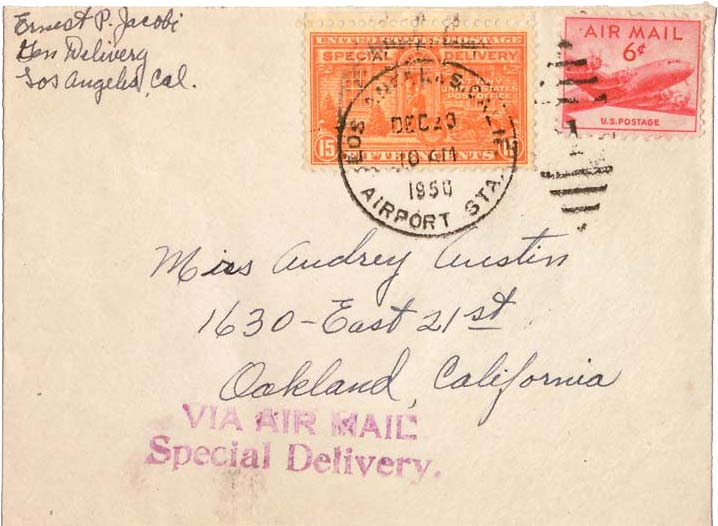 Ernest P. Jacobi
Gen Delivery
Los Angeles, Cal.
UNITED STATES POSTAGE
SPECIAL DELIVERY
UNITED STATES
POST OFFICE
15 FIFTEEN CENTS 15
AIR MAIL
6¢
U.S. POSTAGE
LOS ANGELES, CALIF.
DEC 20
10 AM
1950
AIRPORT STA.
Miss Audrey Austin
1630-East 21st
Oakland, California
VIA AIR MAIL
Special Delivery.